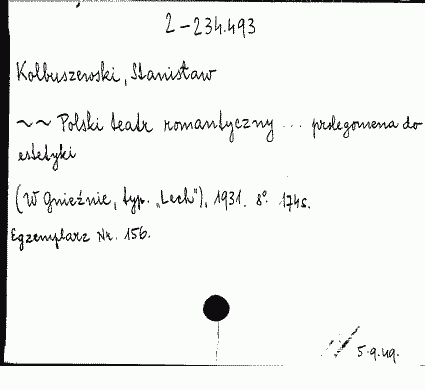 2-234.493
Kolbuszewski, Stanisław
~~ Polski teatr romantyczny ... prolegomena do
estetyki
(W Gnieźnie, typ. „Lech"), 1931. 8°. 174s.
Egzemplarz Nr. 156.
5.9.49.